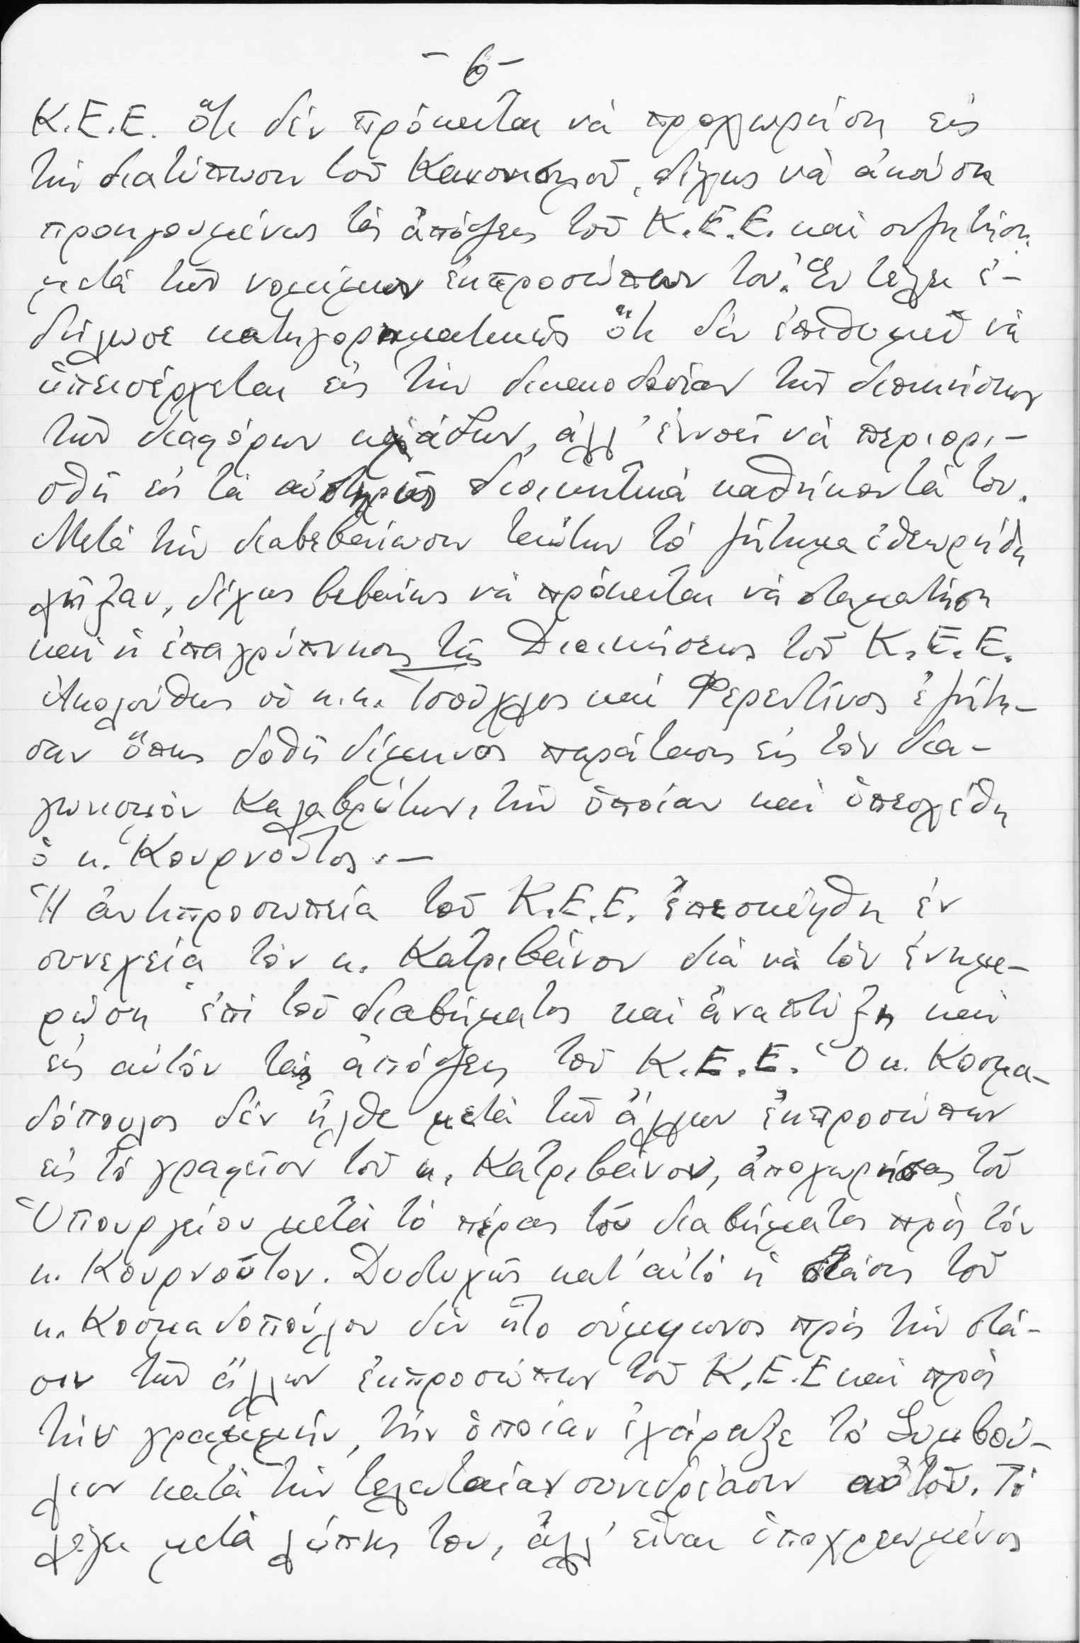 - 6 -
Κ.Ε.Ε. ὅτι δέν πρόκειται νά προχωρήση εἰς
τήν διατύπωσιν τοῦ Κανονισμοῦ, δίχως νά ἀκούση
προηγουμένως τάς ἀπόψεις τοῦ Κ.Ε.Ε. καί συζητήση
μετά τῶν νομίμων ἐκπροσώπων του. Ἐν τέλει ἐ-
δήλωσε κατηγορηματικῶς ὅτι δέν ἐπιθυμεῖ νά
ὑπεισέρχεται εἰς τήν δικαιοδοσίαν τῶν διοικήσεων
τῶν διαφόρων κλάδων, ἀλλ' ἐννοεῖ νά περιορι-
σθῆ εἰς τά αὐστηρῶς διοικητικά καθήκοντά του.
Μετά τήν διαβεβαίωσιν ταύτην τό ζήτημα ἐθεωρήθη
λῆξαν, δίχως βεβαίως νά πρόκειται νά σταματήση
καί ἡ ἐπαγρύπνησις τῆς Διοικήσεως τοῦ Κ.Ε.Ε.
Ἀκολούθως οἱ κ.κ. Τσούχλος καί Φερεντίνος ἐζήτη-
σαν ὅπως δοθῆ δίμηνος παράτασις εἰς τόν δια-
γωνισμόν Καλαβρύτων, τήν ὁποίαν καί ὑπεσχέθη
ὁ κ. Κουρνοῦτος.—
Ἡ ἀντιπροσωπεία τοῦ Κ.Ε.Ε. ἐπεσκέφθη ἐν
συνεχεία τόν κ. Κατριβάνον διά νά τόν ἐνημε-
ρώση ἐπί τοῦ διαβήματος καί ἀναπτύξη καί
εἰς αὐτόν τάς ἀπόψεις τοῦ Κ.Ε.Ε. Ὁ κ. Κοσμα-
δόπουλος δέν ἦλθε μετά τῶν ἄλλων ἐκπροσώπων
εἰς τό γραφεῖον τοῦ κ. Κατριβάνου, ἀποχωρήσας τοῦ
Ὑπουργείου μετά τό πέρας τοῦ διαβήματος πρός τόν
κ. Κουρνοῦτον. Δυστυχῶς κατ' αὐτό ἡ στάσις τοῦ
κ. Κοσμαδοπούλου δέν ἦτο σύμφωνος πρός τήν στά-
σιν τῶν ἄλλων ἐκπροσώπων τοῦ Κ.Ε.Ε καί πρός
τήν γραμμήν, τήν ὁποίαν ἐχάραξε τό Συμβού-
λιον κατά τήν τελευταίαν συνεδρίασιν αὐτοῦ. Τό
λέγει μετά λύπης του, ἀλλ' εἶναι ὑποχρεωμένος